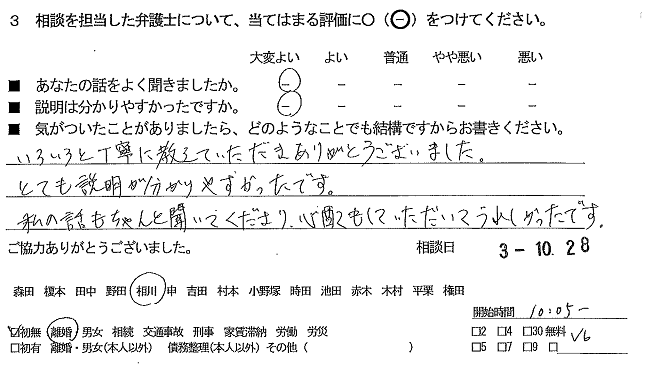 3 相談を担当した弁護士について、当てはまる評価に○（⊖）をつけてください。
大変よい よい 普通 やや悪い 悪い
■ あなたの話をよく聞きましたか。 － － － － －
■ 説明は分かりやすかったですか。 － － － － －
■ 気がついたことがありましたら、どのようなことでも結構ですからお書きください。
いろいろと丁寧に教えていただきありがとうございました。
とても説明が分かりやすかったです。
私の話もちゃんと聞いてくださり、心配もしていただいてうれしかったです。
ご協力ありがとうございました。 相談日 3-10.28
森田 榎本 田中 野田 相川 申 吉田 村本 小野塚 時田 池田 赤木 木村 平栗 権田
開始時間 10:05～
☑初無 離婚・男女 相続 交通事故 刑事 家賃滞納 労働 労災 □2 □4 □30 無料
□初有 離婚・男女(本人以外) 債務整理(本人以外) その他 ( ) □5 □7 □9 □